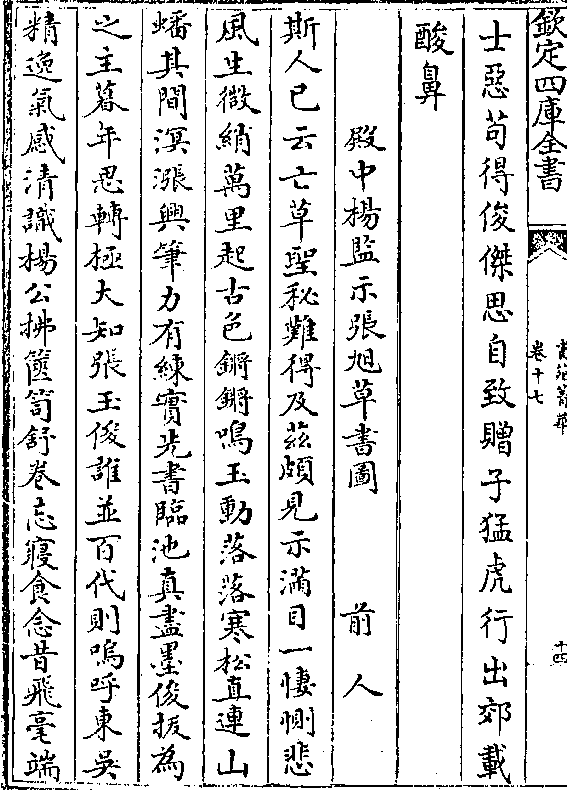 欽定四庫全書
卷十七
十四
士惡苟得俊傑思自致贈子猛虎行出郊載
酸鼻
殿中楊監示張旭草書圖　前人
斯人已云亡草聖秘難得及茲頗見示滿目一悽惻悲
風生微綃萬里起古色鏘鏘鳴玉動落落寒松直連山
蟠其間溟漲興筆力有練實先書臨池真盡墨俊拔為
之主暮年思轉極大知張玉俊誰並百代則嗚呼東吳
精逸氣感清識楊公拂篋笥舒卷忘寢食念昔飛毫端